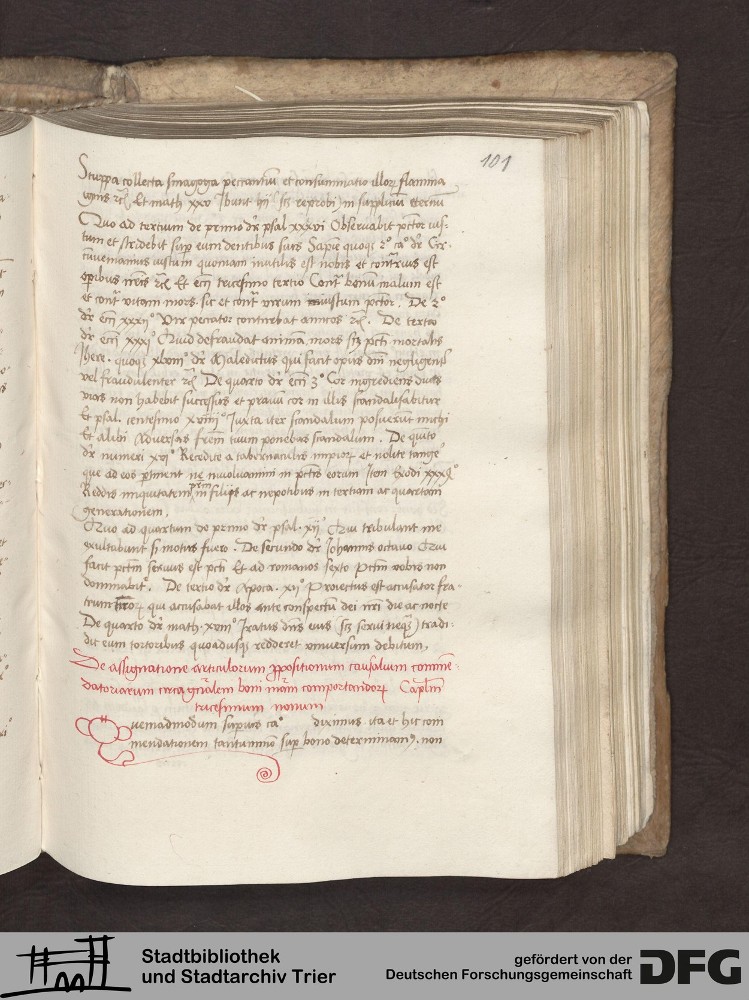 101
Stuppa collecta sinagoga peccantiũ et consummatio illoꝝ flamma
ignis ⁊cͣ Et math xxv Ibunt hij (scꝫ reprobi) in suppliciũ eternũ
Quo ad tertium de primo dr̃ psal xxxvi Obseruabit pctor̃ ius-
tum et stridebit sup eum dentibus suis Sapiẽ quoqꝫ 2º caº dr̃ Cir-
cũueniamus iustum quoniam inutilis est nobis et contrarius est
operibus nr̃is ⁊cͣ Et ecĩ tricesimo tertio Contͣ bonũ malum est
et contͣ vitam mors. sic et contͣ virum iustum pctor̃. De 2º
dr̃ ecĩ xxxijº Vir peccator conturbat amicos ⁊cͣ. De tertio
dr̃ ecĩ xxxiº Quid defraudat animã mors scꝫ pcti mortalis
Ihere. quoqꝫ xlviijº dr̃ Maledictus qui facit opus dnĩ negligenť
vel fraudulenter ⁊cͣ De quarto dr̃ ecĩ 3º Cor ingrediens duas
vias non habebit successus et prauũ cor in illis scandalisabitur
Et psal. centesimo xviiijº Iuxta iter scandalum posuerũt michi
Et alibi Aduersus frẽm tuum ponebas scandalum. De quĩto
dr̃ numeri xviº Recedite a tabernaculis impioꝝ et nolite tange
que ad eos ptinent ne inuoluamini in pctis eorum Item Exodi
Reddis iniquitatem pr̃m in filijs ac nepotibus in tertiam ac quartam
generationem,
Quo ad quartum de primo dr̃ psal. xijº Qui tribulant me
exultabunt si motus fuero. De secundo dr̃ Iohannis octauo Qui
facit pctm̃ seruus est pcti Et ad romanos sexto Pctm̃ vobis non
dominabiť. De tertio dr̃ Apoca. xijº Proiectus est accusator fra-
trum qui accusabat illos ante conspectũ dei nr̃i die ac nocte
De quarto dr̃ math. xviijº Iratus dñs eius (scꝫ serui neqꝫ) tradi-
dit eum tortoribus quoadusqꝫ redderet vniuersum debitum,
De assignatione articulorum ꝓpositionum causalum comme-
datoriarum circa gñalem boni comportandoꝝ Caplm̃
tricesimum nonum
Quemadmodum superius caº diximus ita et hic com
mendationem tantummõ sup bono determinamꝰ. non
Stadtbibliothek
und Stadtarchiv Trier
gefördert von der
Deutschen Forschungsgemeinschaft
DFG